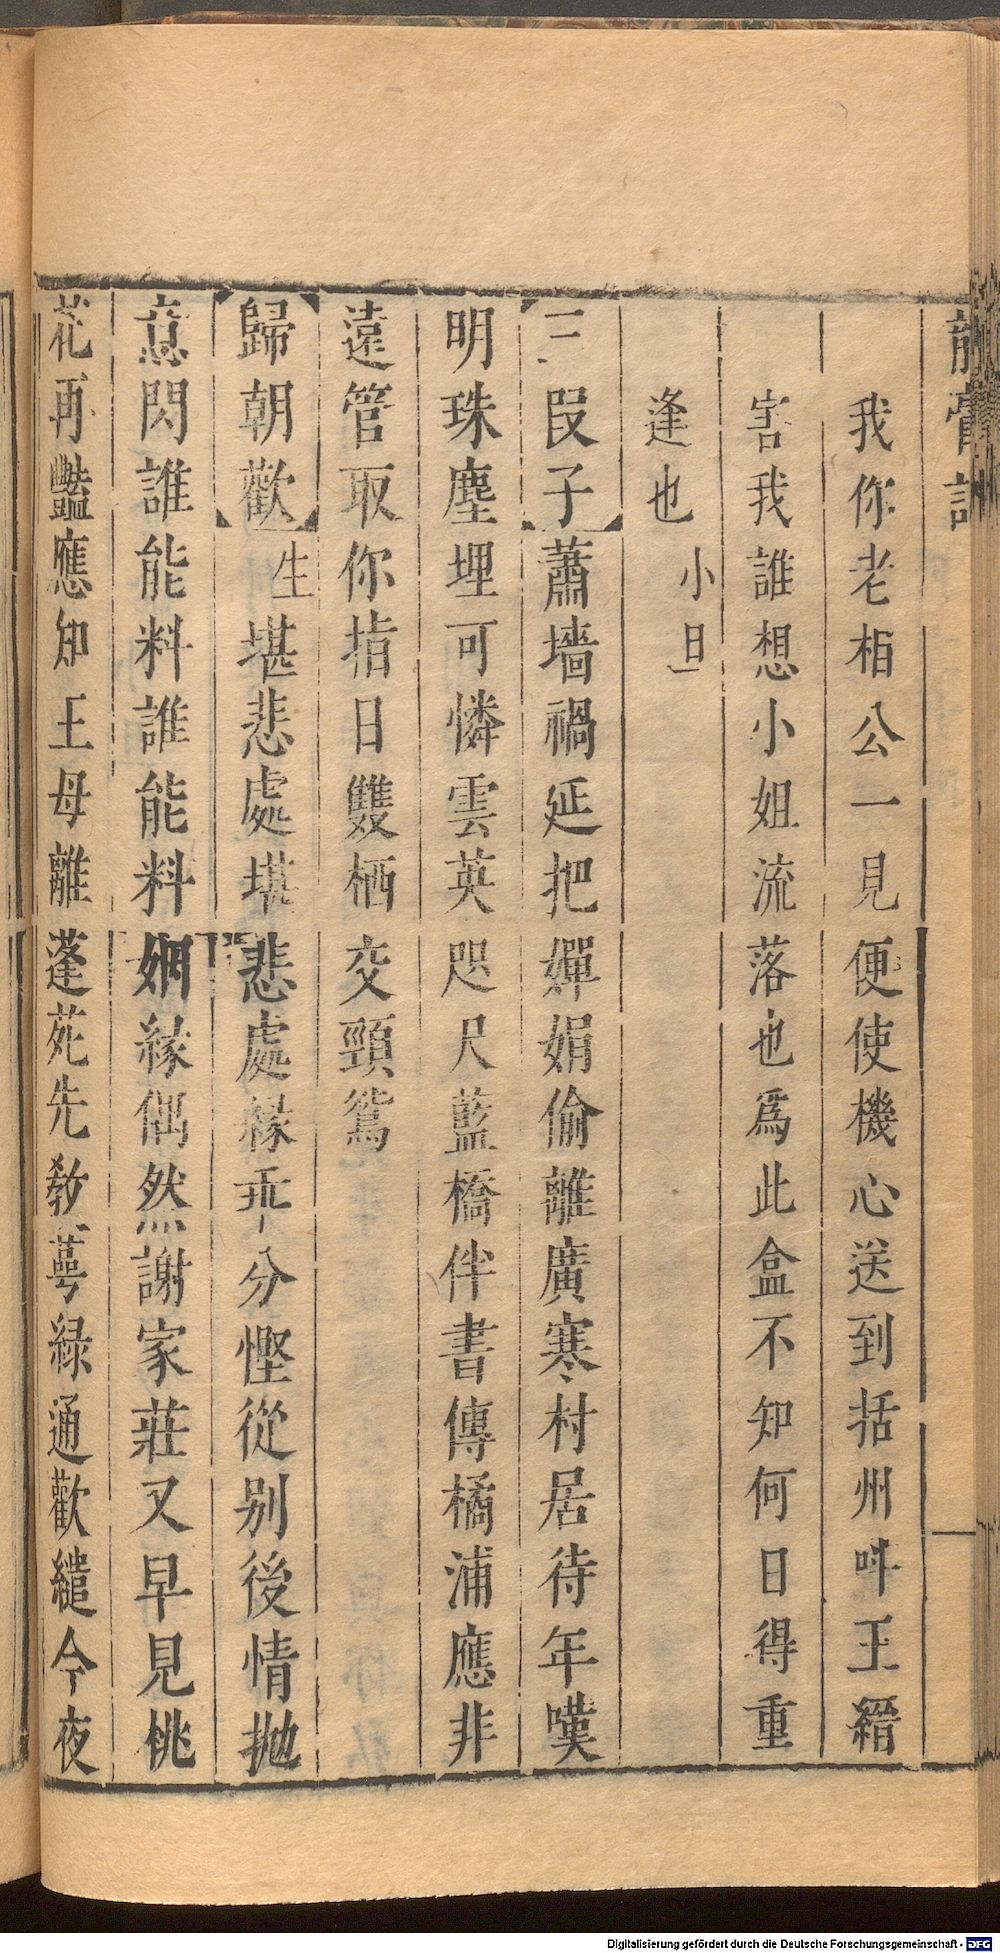 龍膏記
我你老相公一見便使機心送到括州呌王縉
害我誰想小姐流落也爲此盒不知何日得重
逢也 小旦
三叚子 蕭墻禍延把嬋娟偷離廣寒村居待年嘆
明珠塵埋可憐雲英咫尺藍橋伴書傳橘浦應非
遠管取你指日雙栖交頸鴛
歸朝歡 生堪悲處堪悲處緣乖分慳從别後情拋
意閃誰能料誰能料姻緣偶然謝家莊又早見桃
花再豔應知王母離蓬苑先敎萼緑通歡繾今夜
Digitalisierung gefördert durch die Deutsche Forschungsgemeinschaft - DFG